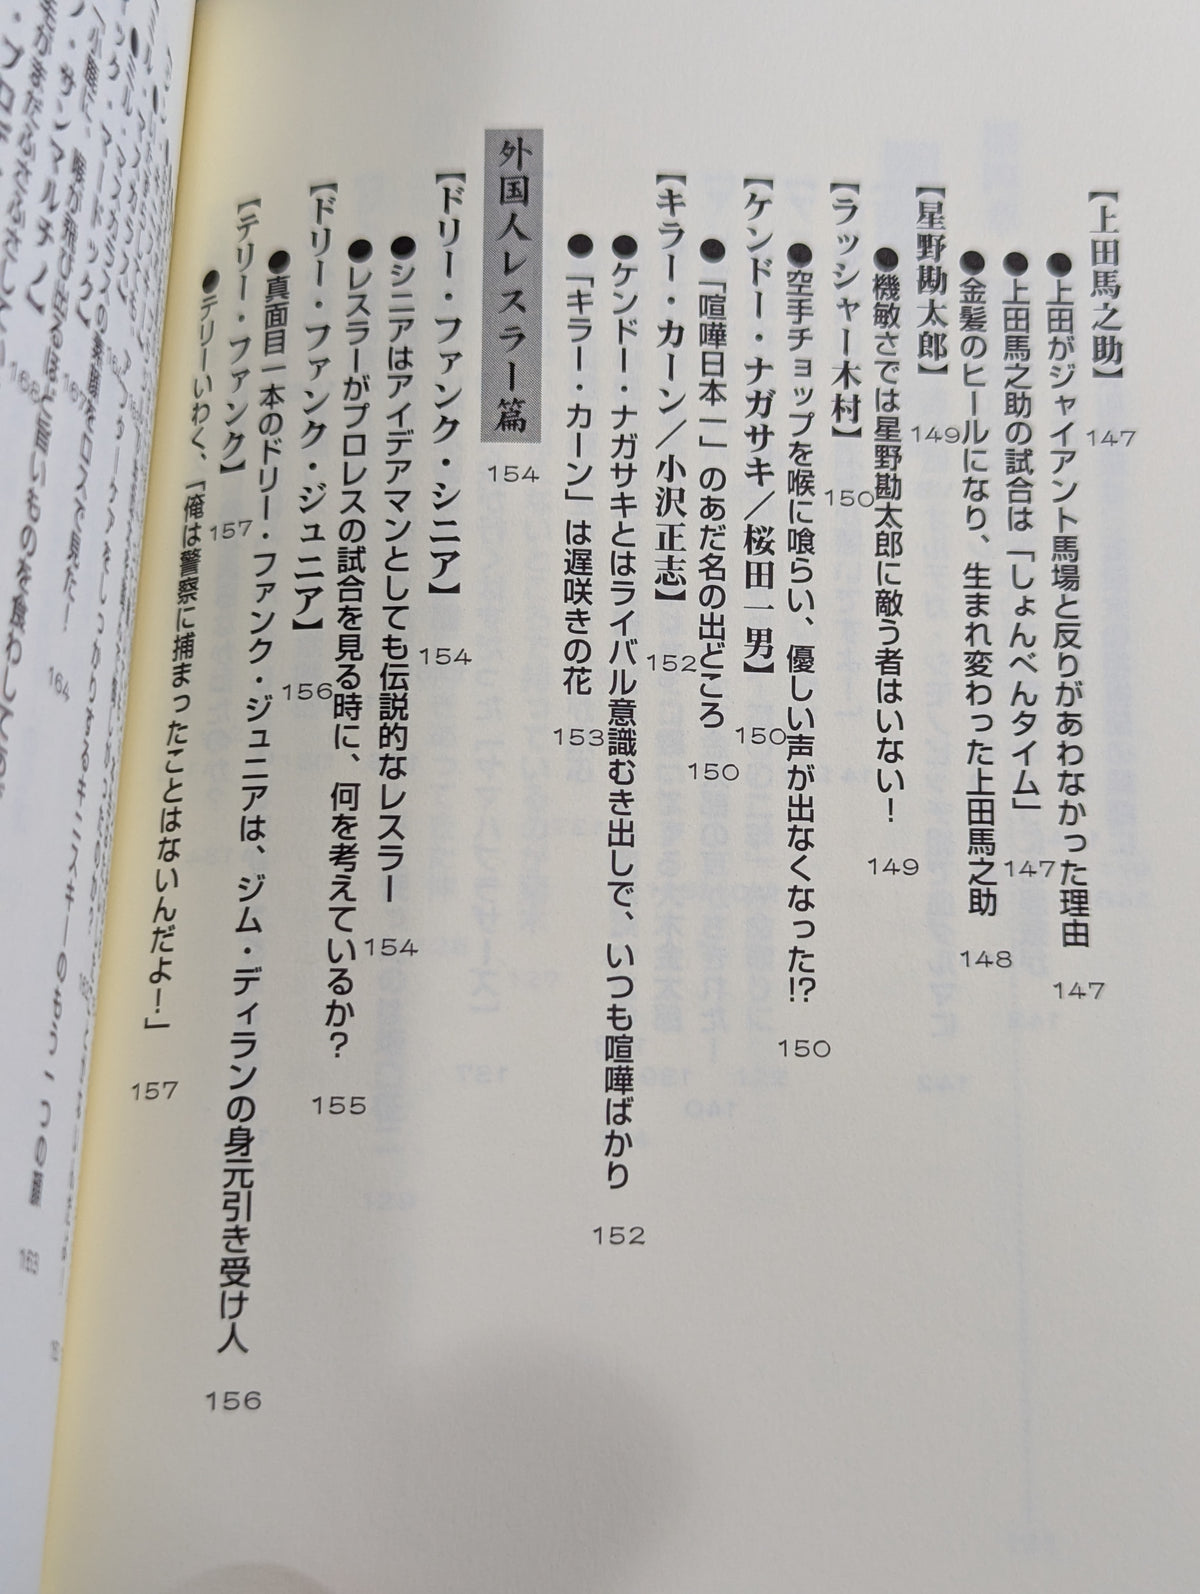 【上田馬之助】 147
●上田がジャイアント馬場と反りがあわなかった理由 147
●上田馬之助の試合は「しょんべんタイム」 147
●金髪のヒールになり、生まれ変わった上田馬之助 148
【星野勘太郎】 149
●機敏さでは星野勘太郎に敵う者はいない! 149
【ラッシャー木村】 150
●空手チョップを喉に喰らい、優しい声が出なくなった!? 150
【ケンドー・ナガサキ/桜田一男】 150
●「喧嘩日本一」のあだ名の出どころ 150
【キラー・カーン/小沢正志】 152
●ケンドー・ナガサキとはライバル意識むき出しで、いつも喧嘩ばかり 152
●「キラー・カーン」は遅咲きの花 153
外国人レスラー篇 154
【ドリー・ファンク・シニア】 154
●シニアはアイデアマンとしても伝説的なレスラー 154
●レスラーがプロレスの試合を見る時に、何を考えているか? 155
【ドリー・ファンク・ジュニア】 156
●真面目一本のドリー・ファンク・ジュニアは、ジム・ディランの身元引き受け人 156
【テリー・ファンク】 157
●テリーいわく、「俺は警察に捕まったことはないんだよ!」 157